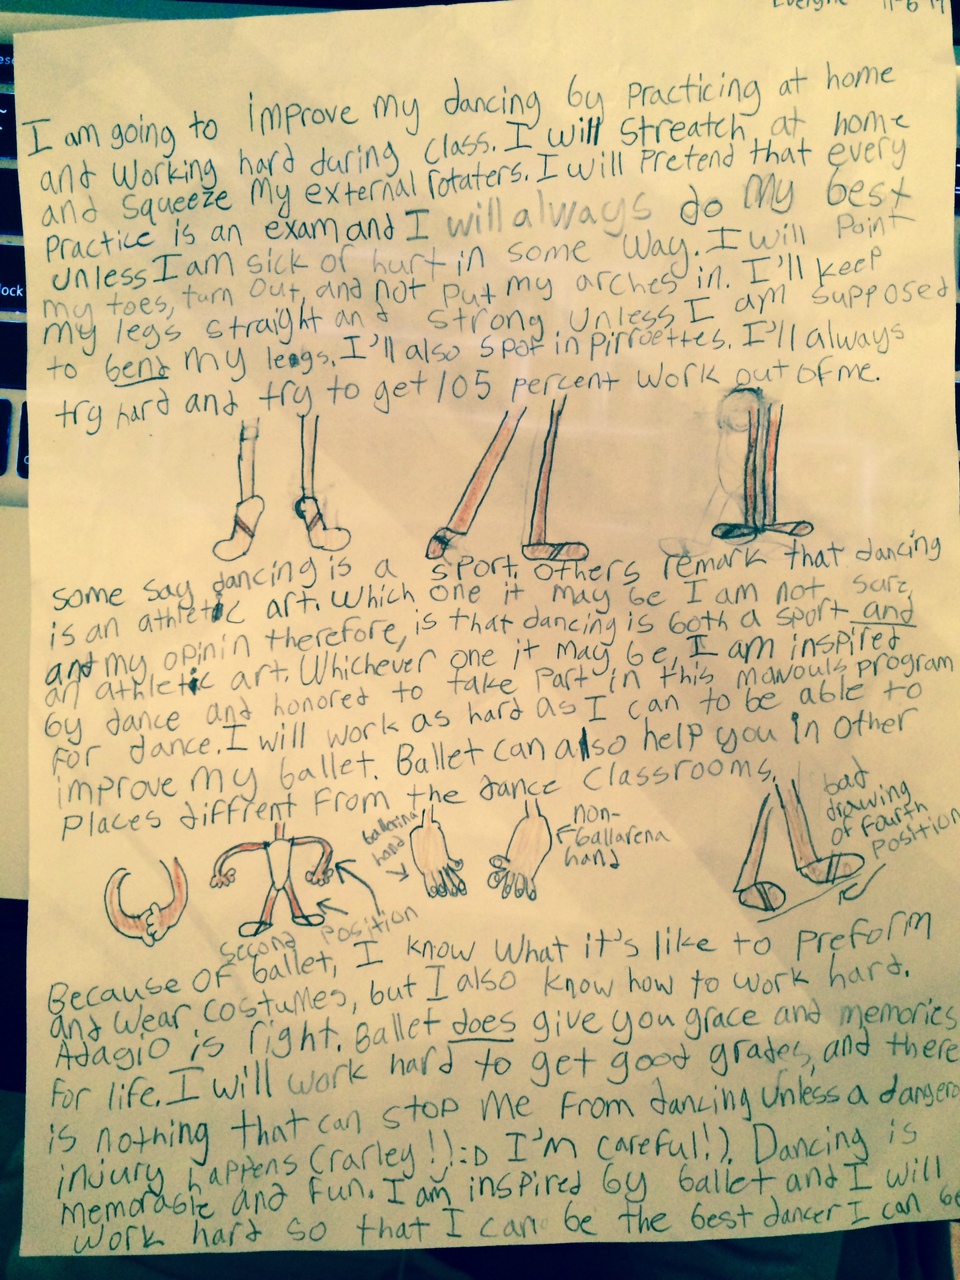 11-6
I am going to improve my dancing by practicing at home
and working hard during class. I will streatch at home
and squeeze my external rotaters. I will pretend that every
practice is an exam and I will always do my best
unless I am sick or hurt in some way. I will point
my toes, turn out, and not put my arches in. I'll keep
my legs straight and strong unless I am supposed
to bend my legs. I'll also spot in pirroettes. I'll always
try hard and try to get 105 percent work out of me.
Some say dancing is a sport. Others remark that dancing
is an athletic art. Which one it may be I am not sure,
and my opinin therefore, is that dancing is both a sport and
an athletic art. Whichever one it may be, I am inspired
by dance and honored to take part in this program
for dance. I will work as hard as I can to be able to
improve my ballet. Ballet can also help you in other
places diffrent from the dance classrooms.
ballerina
hand
non-
ballarena
hand
bad
drawing
of fourth
position
second position
Because of ballet, I know what it's like to preform
and wear costumes, but I also know how to work hard.
Adagio is right. Ballet does give you grace and memories
for life. I will work hard to get good grades, and there
is nothing that can stop me from dancing unless a
injury happens (rarley!):D I'm careful!). Dancing is
memorable and fun. I am inspired by ballet and I will
work hard so that I can be the best dancer I can be